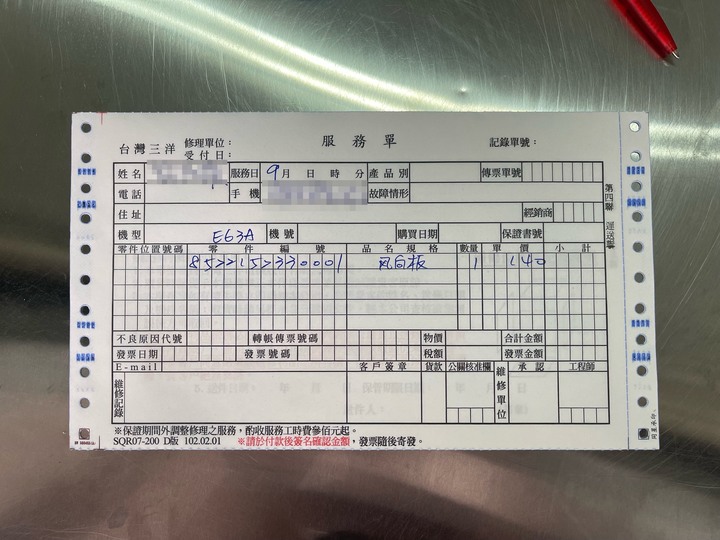 台灣三洋 修理單位： 服務單 記錄單號：
受付日：
姓名 服務日 9月 日 時 分 產品別 傳票單號
電話 手機 故障情形
住址 經銷商
機型 E63A 機號 購買日期 保證書號
零件位置號碼 零件編號 品名規格 數量 單價 小計
8522152330001 風向板 1 140
不良原因代號 轉帳傳票號碼 物價 合計金額
發票日期 發票號碼 稅額 發票金額
E-mail 客戶簽章 貨款 公關核准欄 維修單位 承認 工程師
維修記錄
※保證期間外調整修理之服務，酌收服務工時費參佰元起。
SQR07-200 D版 102.02.01 ※請於付款後簽名確認金額，發票隨後寄發。
第四聯